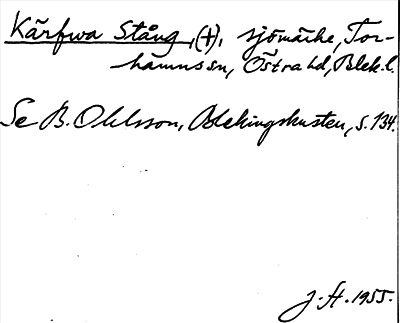 Kärfwa Stång, (+), sjömärke, Tor-
hamns sn, Östra hd, Blek. l.
Se B. Ohlsson, Blekingskusten, s. 134.
J. H. 1955.